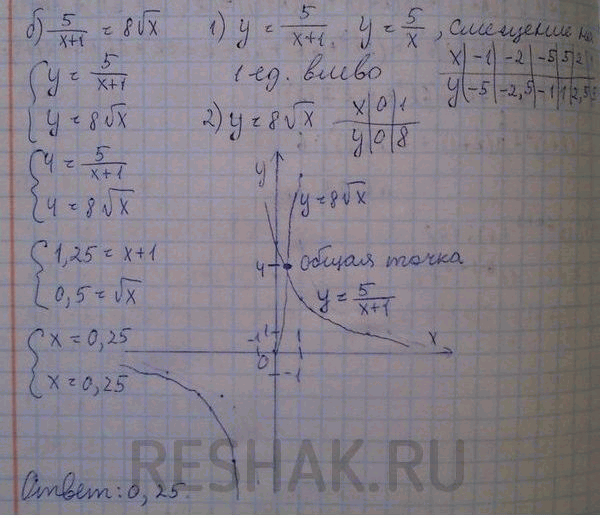 б) 5/(x+1) = 8√x
{ y = 5/(x+1)
y = 8√x
{ 4 = 5/(x+1)
4 = 8√x
{ 1,25 = x+1
0,5 = √x
{ x = 0,25
x = 0,25
1) y = 5/(x+1) y = 5/x, смещение на
1 ед. влево
x | -1 | -2 | -5 | 5 | 2 |
y | -5 | -2,5 | -1 | 1 | 2,5 | 5
2) y = 8√x
x | 0 | 1
y | 0 | 8
y
y = 8√x
4
общая точка
y = 5/(x+1)
x
-1 1 1
0
-1
Ответ: 0,25.
RESHAK.RU